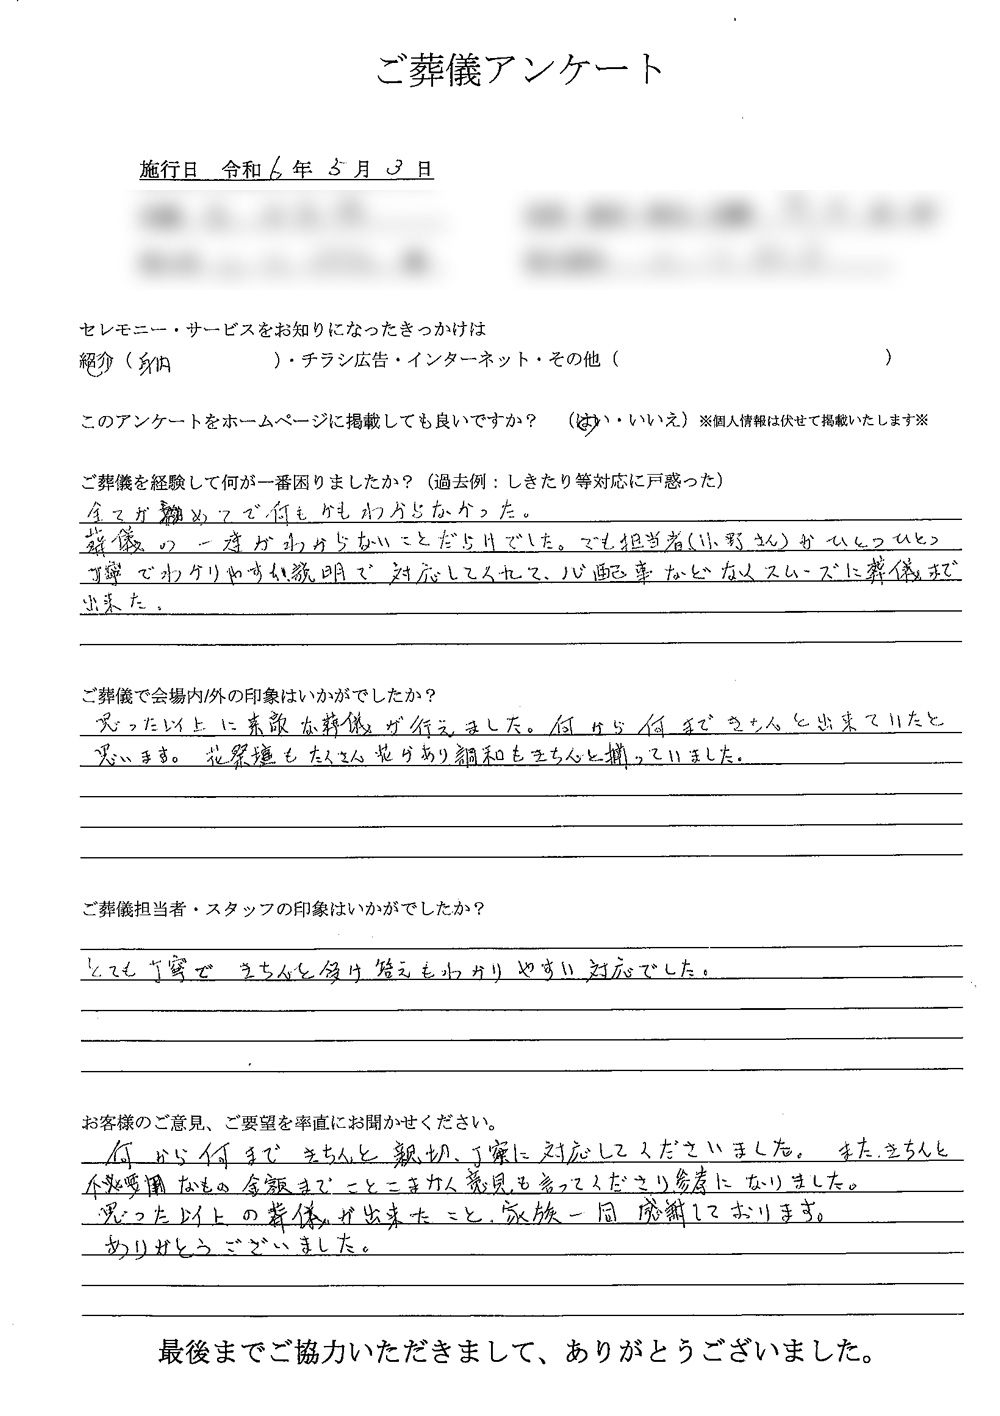 ご葬儀アンケート
施行日 令和6年5月3日
セレモニー・サービスをお知りになったきっかけは
紹介(身内)・チラシ広告・インターネット・その他( )
このアンケートをホームページに掲載しても良いですか? (はい・いいえ)※個人情報は伏せて掲載いたします※
ご葬儀を経験して何が一番困りましたか?(過去例:しきたり等対応に戸惑った)
全てが初めてで何もかもわからなかった。
葬儀の一度がわからないことだらけでした。でも担当者(小野さん)がひとつひとつ
丁寧でわかりやすい説明で対応してくれて、心配事などなくスムーズに葬儀まで
出来た。
ご葬儀で会場内/外の印象はいかがでしたか?
思った以上に素敵な葬儀が行えました。何から何まできちんと出来ていたと
思います。花祭壇もたくさん花があり調和もきちんと揃っていました。
ご葬儀担当者・スタッフの印象はいかがでしたか?
とても丁寧できちんと受け答えもわかりやすい対応でした。
お客様のご意見、ご要望を率直にお聞かせください。
何から何まできちんと親切、丁寧に対応してくださいました。また、きちんと
不必要なもの金額までことこまかく意見も言ってくださり参考になりました。
思った以上の葬儀が出来たこと、家族一同感謝しております。
ありがとうございました。
最後までご協力いただきまして、ありがとうございました。